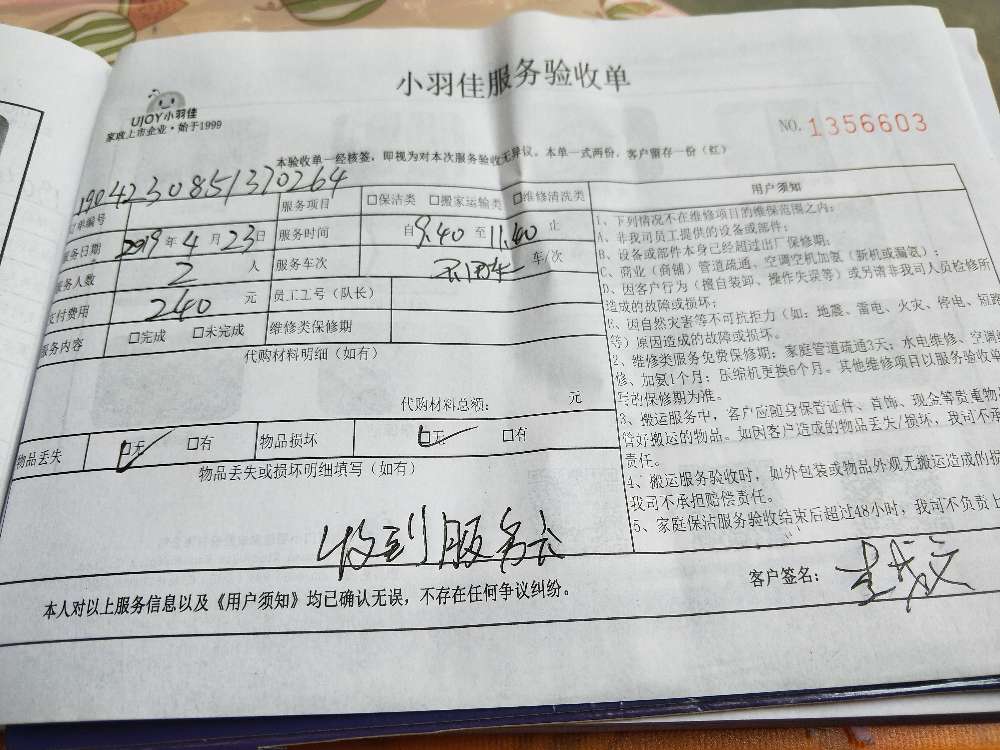 小羽佳服务验收单
UJOY小羽佳
家政上市企业·始于1999
NO. 1356603
本验收单一经核签，即视为对本次服务验收无异议。本单一式两份，客户留存一份（红）
单编号 1904230851370264 服务项目 □保洁类 □搬家运输类 □维修清洗类
务日期 2019年4月23日 服务时间 自9.40至11.40止
务人数 2人 服务车次 车/次
付费用 240元 员工工号（队长）
服务内容 □完成 □未完成 维修类保修期
代购材料明细（如有）
代购材料总额： 元
物品丢失 ☑无 □有 物品损坏 ☑无 □有
物品丢失或损坏明细填写（如有）
收到服务
本人对以上服务信息以及《用户须知》均已确认无误，不存在任何争议纠纷。
用户须知
1、下列情况不在维修项目的维保范围之内：
A、非我司员工提供的设备或部件；
B、设备或部件本身已经超过出厂保修期；
C、商业（商铺）管道疏通、空调空机加氨（新机或漏氨）；
D、因客户行为（擅自装卸、操作失误等）或另请非我司人员检修所
造成的故障或损坏；
E、因自然灾害等不可抗拒力（如：地震、雷电、火灾、停电、短路
等）原因造成的故障或损坏。
2、维修类服务免费保修期：家庭管道疏通3天；水电维修、空调
修、加氨1个月；压缩机更换6个月。其他维修项目以服务验收单
写的保修期为准。
3、搬运服务中，客户应随身保管证件、首饰、现金等贵重物
管好搬运的物品。如因客户造成的物品丢失/损坏，我司不承
责任。
4、搬运服务验收时，如外包装或物品外观无搬运造成的损
我司不承担赔偿责任。
5、家庭保洁服务验收结束后超过48小时，我司不负责上
客户签名：